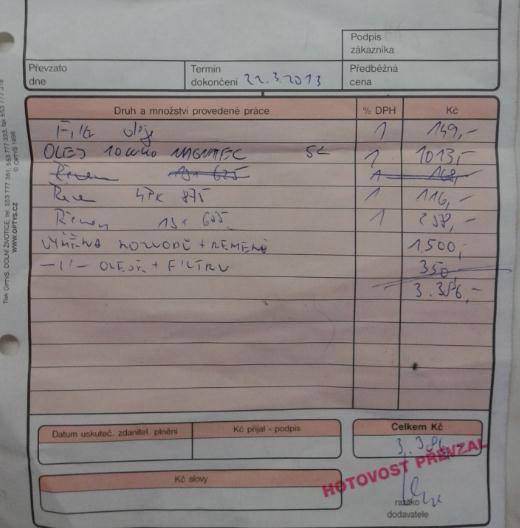 Podpis
zákazníka
Převzato
dne
Termín
dokončení 22.3.2013
Předběžná
cena
Druh a množství provedené práce % DPH Kč
Filtr oleje 1 149,-
OLEJ 10W40 MAGNATEC 5L 1 1013,-
Řemen 13x625 1
4PK 875 1 116,-
Řemen 1 258,-
VÝMĚNA ROZVODŮ + ŘEMENŮ 1500,-
-11- OLEJE + FILTRU 350
3.386,-
Datum uskuteč. zdanitel. plnění Kč přijal - podpis Celkem Kč
3.386
HOTOVOST PŘEVZAL
Kč slovy
razítko
dodavatele
Tisk OPTYS, DOLNÍ ŽIVOTICE
© OPTYS 1998
WWW.OPTYS.CZ